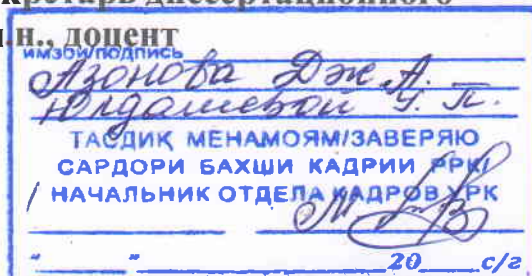 кретарь диссертационного
н., доцент
ИМЗО/ПОДПИСЬ
Азонова Дж. А.
Юлдашевой У. П.
ТАСДИҚ МЕНАМОЯМ/ЗАВЕРЯЮ
САРДОРИ БАХШИ КАДРИИ РРК/
НАЧАЛЬНИК ОТДЕЛА КАДРОВ УРК
" " 20 с/г